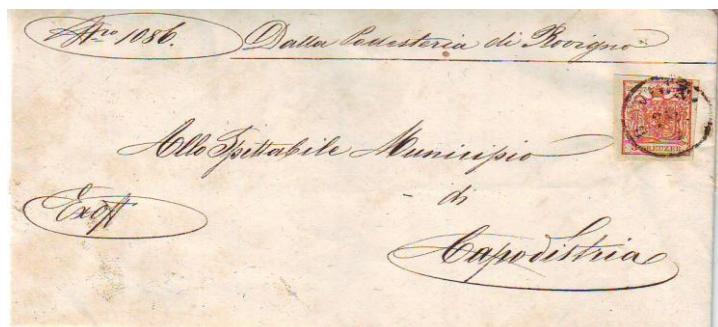 Nro 1086. Dalla Podesteria di Rovigno
Allo Spettabile Municipio
di
Exoff
Capodistria
KREUZER